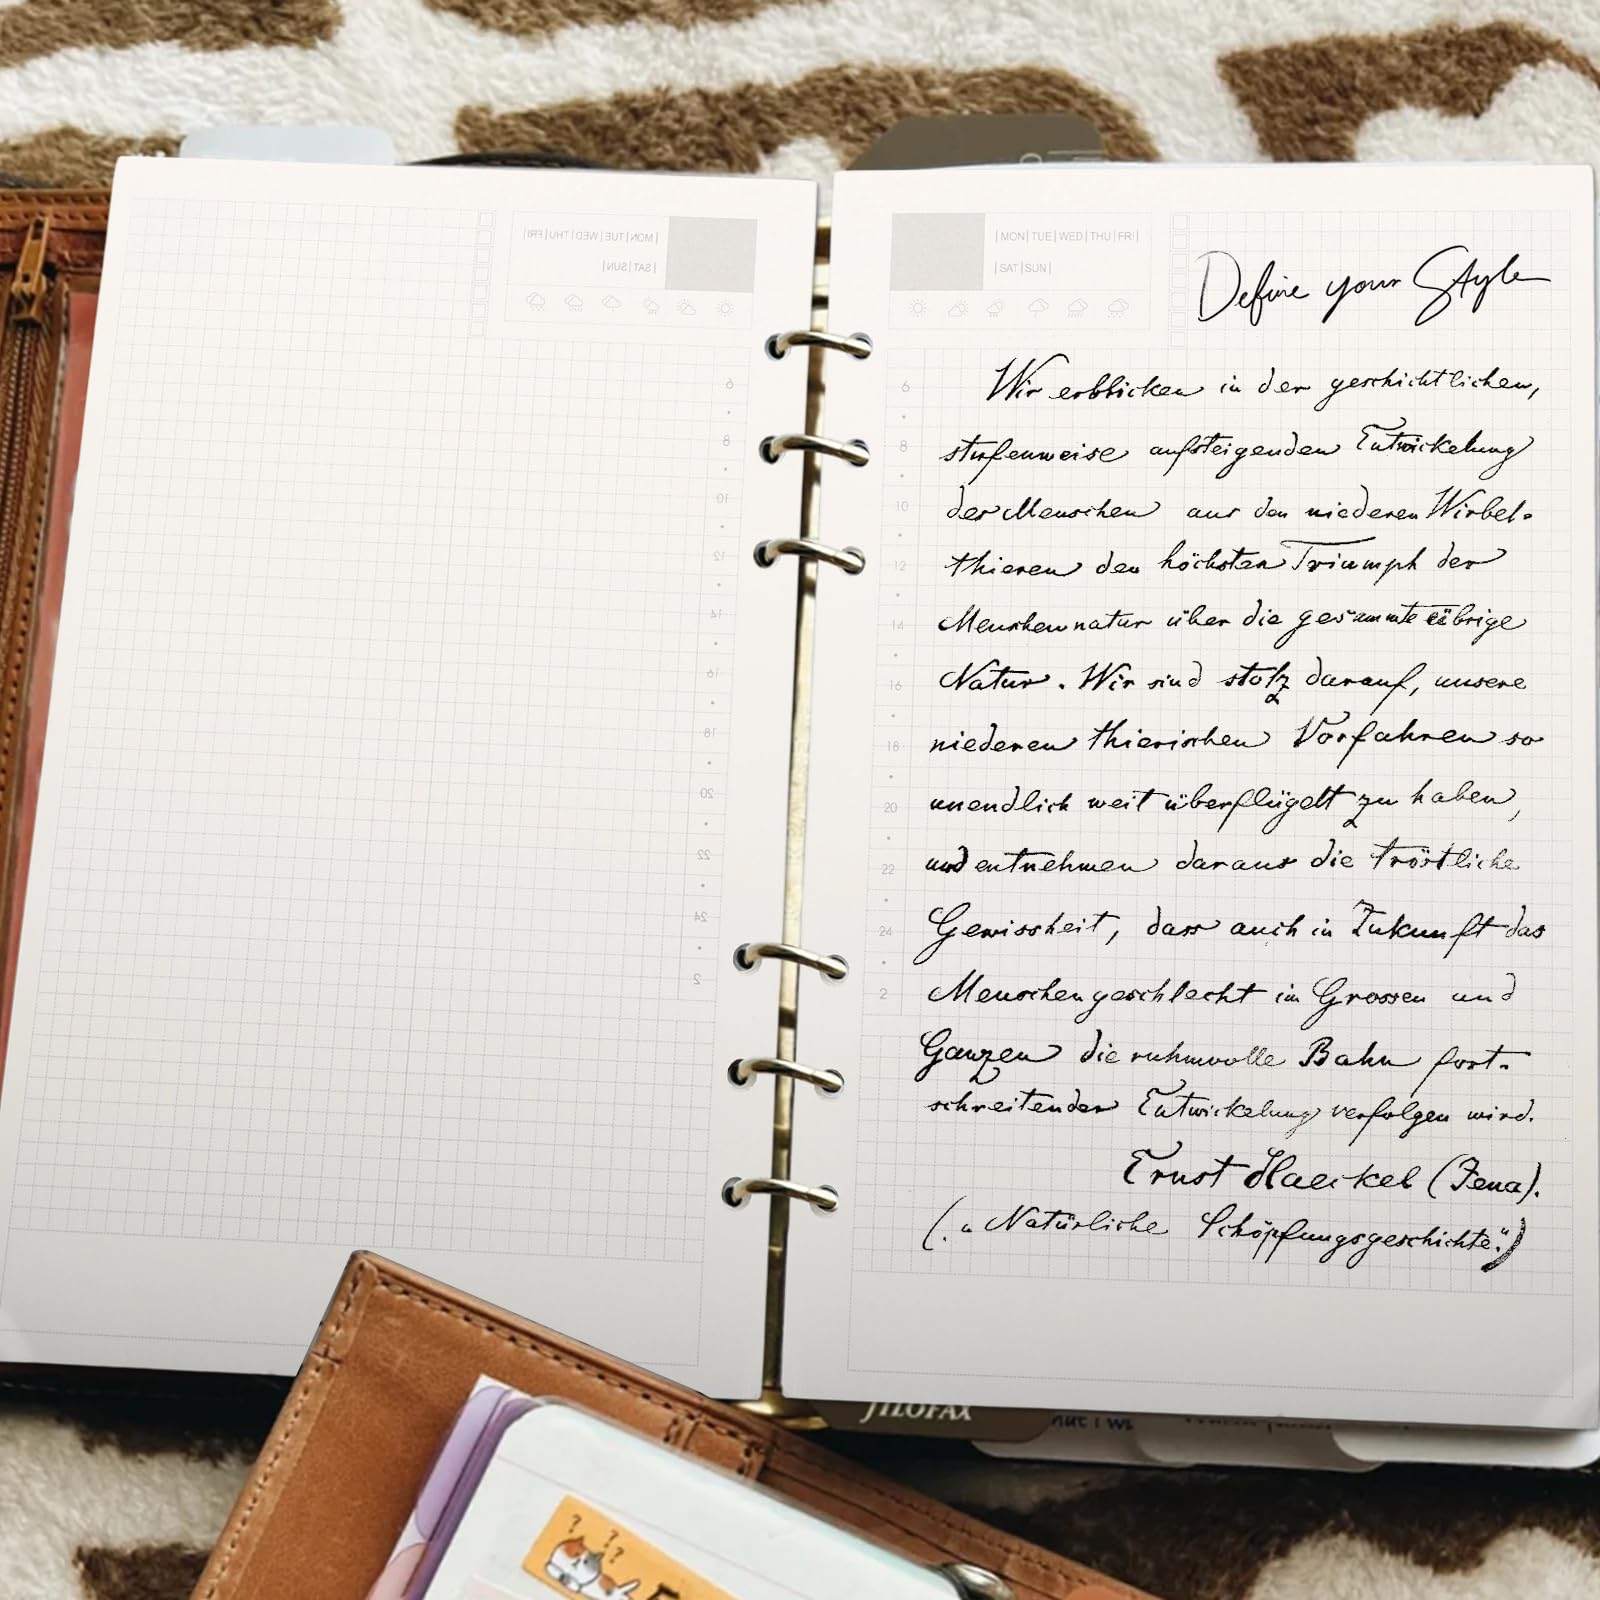 MON|TUE|WED|THU|FRI|
|SAT|SUN|
Define your Style
6
8
10
12
14
16
18
20
22
24
2
|MON|TUE|WED|THU|FRI|
|SAT|SUN|
6
8
10
12
14
16
18
20
22
24
2
Wir erblicken in der geschichtlichen,
stufenweise aufsteigenden Entwickelung
der Menschen aus den niederen Wirbel-
thieren den höchsten Triumph der
Menschennatur über die gesammte übrige
Natur. Wir sind stolz darauf, unsere
niederen thierischen Vorfahren so
unendlich weit überflügelt zu haben,
und entnehmen daraus die tröstliche
Gewissheit, dass auch in Zukunft das
Menschengeschlecht im Grossen und
Ganzen die ruhmvolle Bahn fort-
schreitender Entwickelung verfolgen wird.
Ernst Haeckel (Jena).
(„Natürliche Schöpfungsgeschichte.")
FILOFAX
??
??